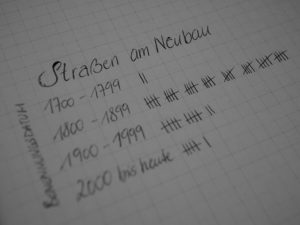 Straßen am Neubau
1700 - 1799
1800 - 1899
1900 - 1999
2000 bis heute